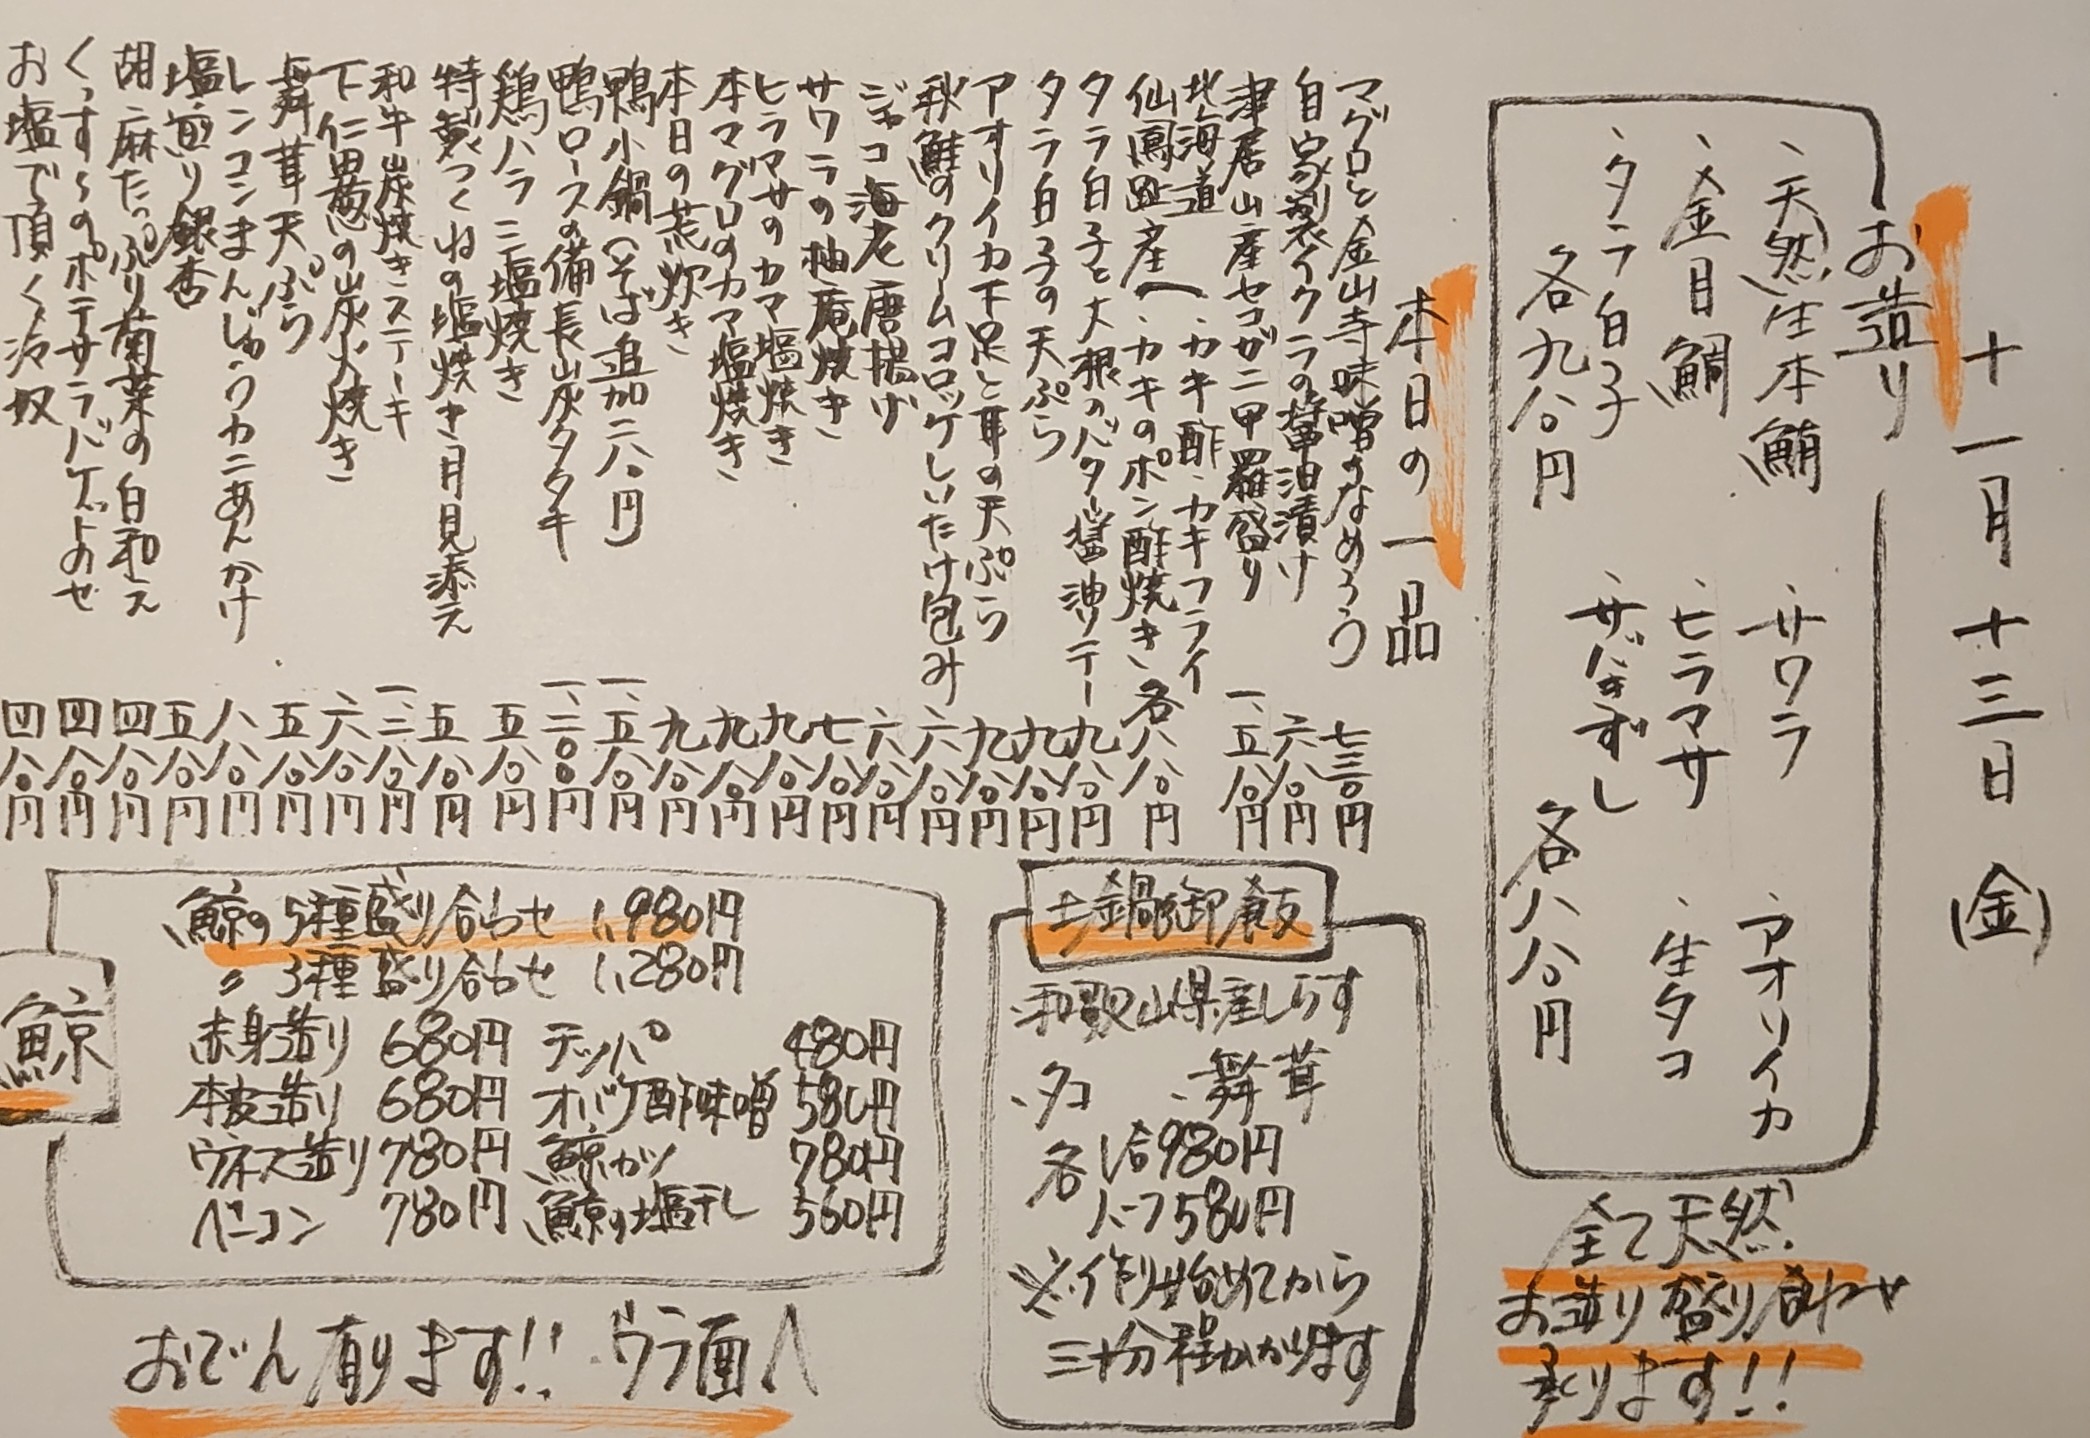 十一月十三日(金)
お造り
・天然生本鮪 ・サワラ ・アオリイカ
・金目鯛 ・ヒラマサ ・生タコ
・タラ白子 ・サバきずし
各九八〇円 各八八〇円
全て天然
お造り盛り合わせ
承ります!!
本日の一品
マグロと金山寺味噌のなめろう 七三〇円
自家製イクラの醤油漬け 六八〇円
津居山産セコガニ甲羅盛り 一、五八〇円
北海道 ・カキ酢・カキフライ
仙鳳趾産 ・カキのポン酢焼き 各八八〇円
タラ白子と大根のバター醤油ソテー 九八〇円
タラ白子の天ぷら 九八〇円
アオリイカ下足と耳の天ぷら 九八〇円
秋鮭のクリームコロッケしいたけ包み 六八〇円
ジャコ海老唐揚げ 六八〇円
サワラの柚庵焼き 七八〇円
ヒラマサのカマ塩焼き 九八〇円
本マグロのカマ塩焼き 九八〇円
本日の荒炊き 九八〇円
鴨小鍋(そば追加二八〇円 一、五八〇円
鴨ロースの備長山灰タタキ 一、二〇〇円
鶏ハラミ塩焼き 五八〇円
特製つくねの塩焼き月見添え 五八〇円
和牛炭焼きステーキ 一、三八〇円
下仁田葱の炭火焼き 六八〇円
舞茸天ぷら 五八〇円
レンコンまんじゅうカニあんかけ 八八〇円
塩煎り銀杏 五八〇円
胡麻たっぷり菊菜の白和え 四八〇円
くっすぅのポテサラバゲットのせ 四八〇円
お塩で頂く冷奴 四八〇円
土鍋御飯
・和歌山県産しらす
・タコ ・舞茸
各 1合980円
ハーフ580円
※作り始めてから
三十分程かかります
鯨
鯨の5種盛り合わせ 1,980円
〃 3種盛り合わせ 1,280円
赤身造り 680円 テッパ 480円
本皮造り 680円 オバケ酢味噌 580円
ウネス造り 780円 鯨カツ 780円
ベーコン 780円 鯨の塩干し 560円
おでん有ります!! ウラ面へ